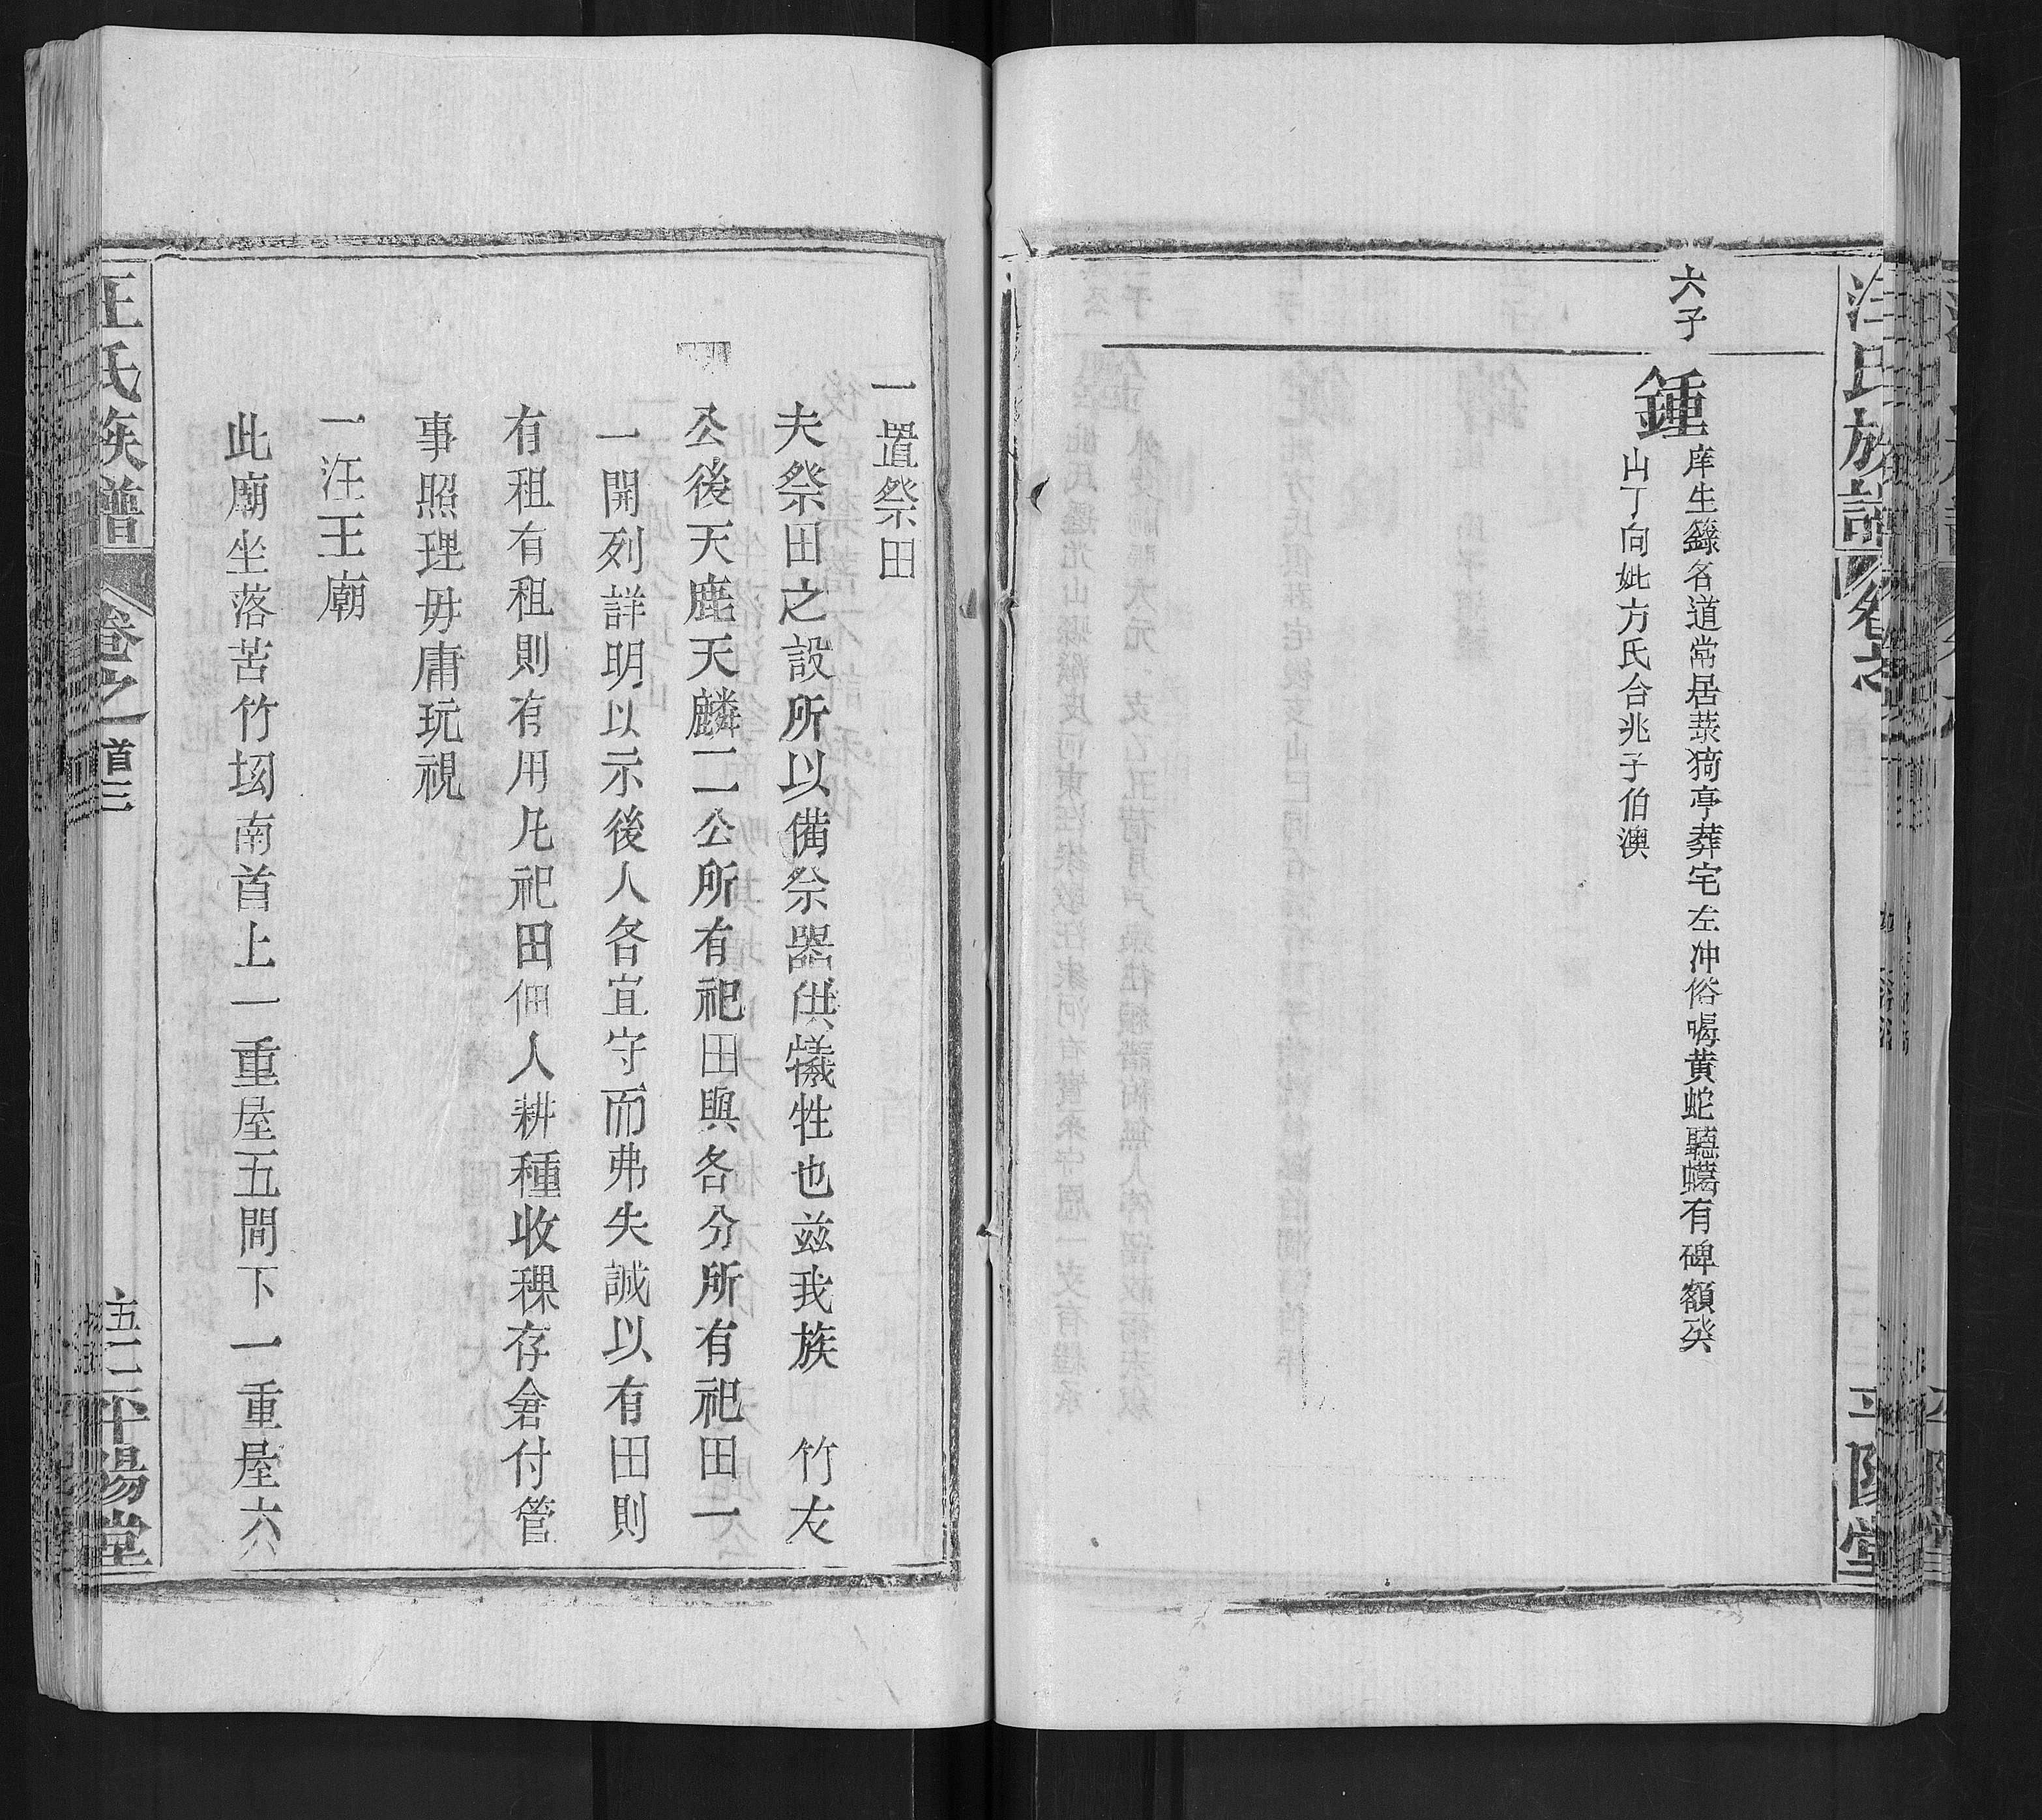 汪氏族譜
卷之
平陽堂
六子
鍾
庠生籙名道常居蔴猗亭葬宅左冲俗喝黄蛇聽蟆有碑額癸
山丁向妣方氏合兆子伯澳
一置祭田
夫祭田之設所以備祭器供犧牲也兹我族 竹友
公後天鹿天麟二公所有祀田與各分所有祀田一
一開列詳明以示後人各宜守而弗失誠以有田則
有租有租則有用凡祀田佃人耕種收稞存倉付管
事照理毋庸玩視
一汪王廟
此廟坐落苦竹坳南首上一重屋五間下一重屋六
汪氏族譜
卷之一首三
五二
平陽堂